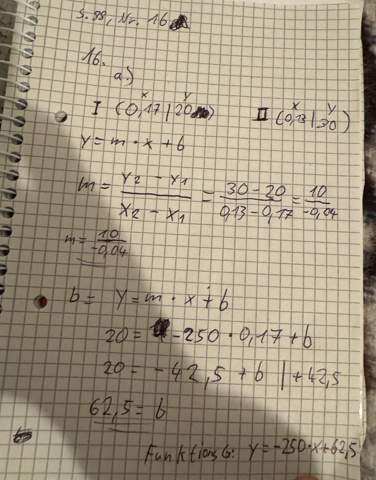 S. 98, Nr. 16
16.
a.)
x y x y
I (0,17|20) II (0,13|30)
y = m · x + b
m = (y2 - y1)/(x2 - x1) = (30 - 20)/(0,13 - 0,17) = 10/-0,04
m = 10/-0,04
b = y = m · x + b
20 = -250 · 0,17 + b
20 = -42,5 + b | +42,5
62,5 = b
Funktions G: y = -250 · x + 62,5